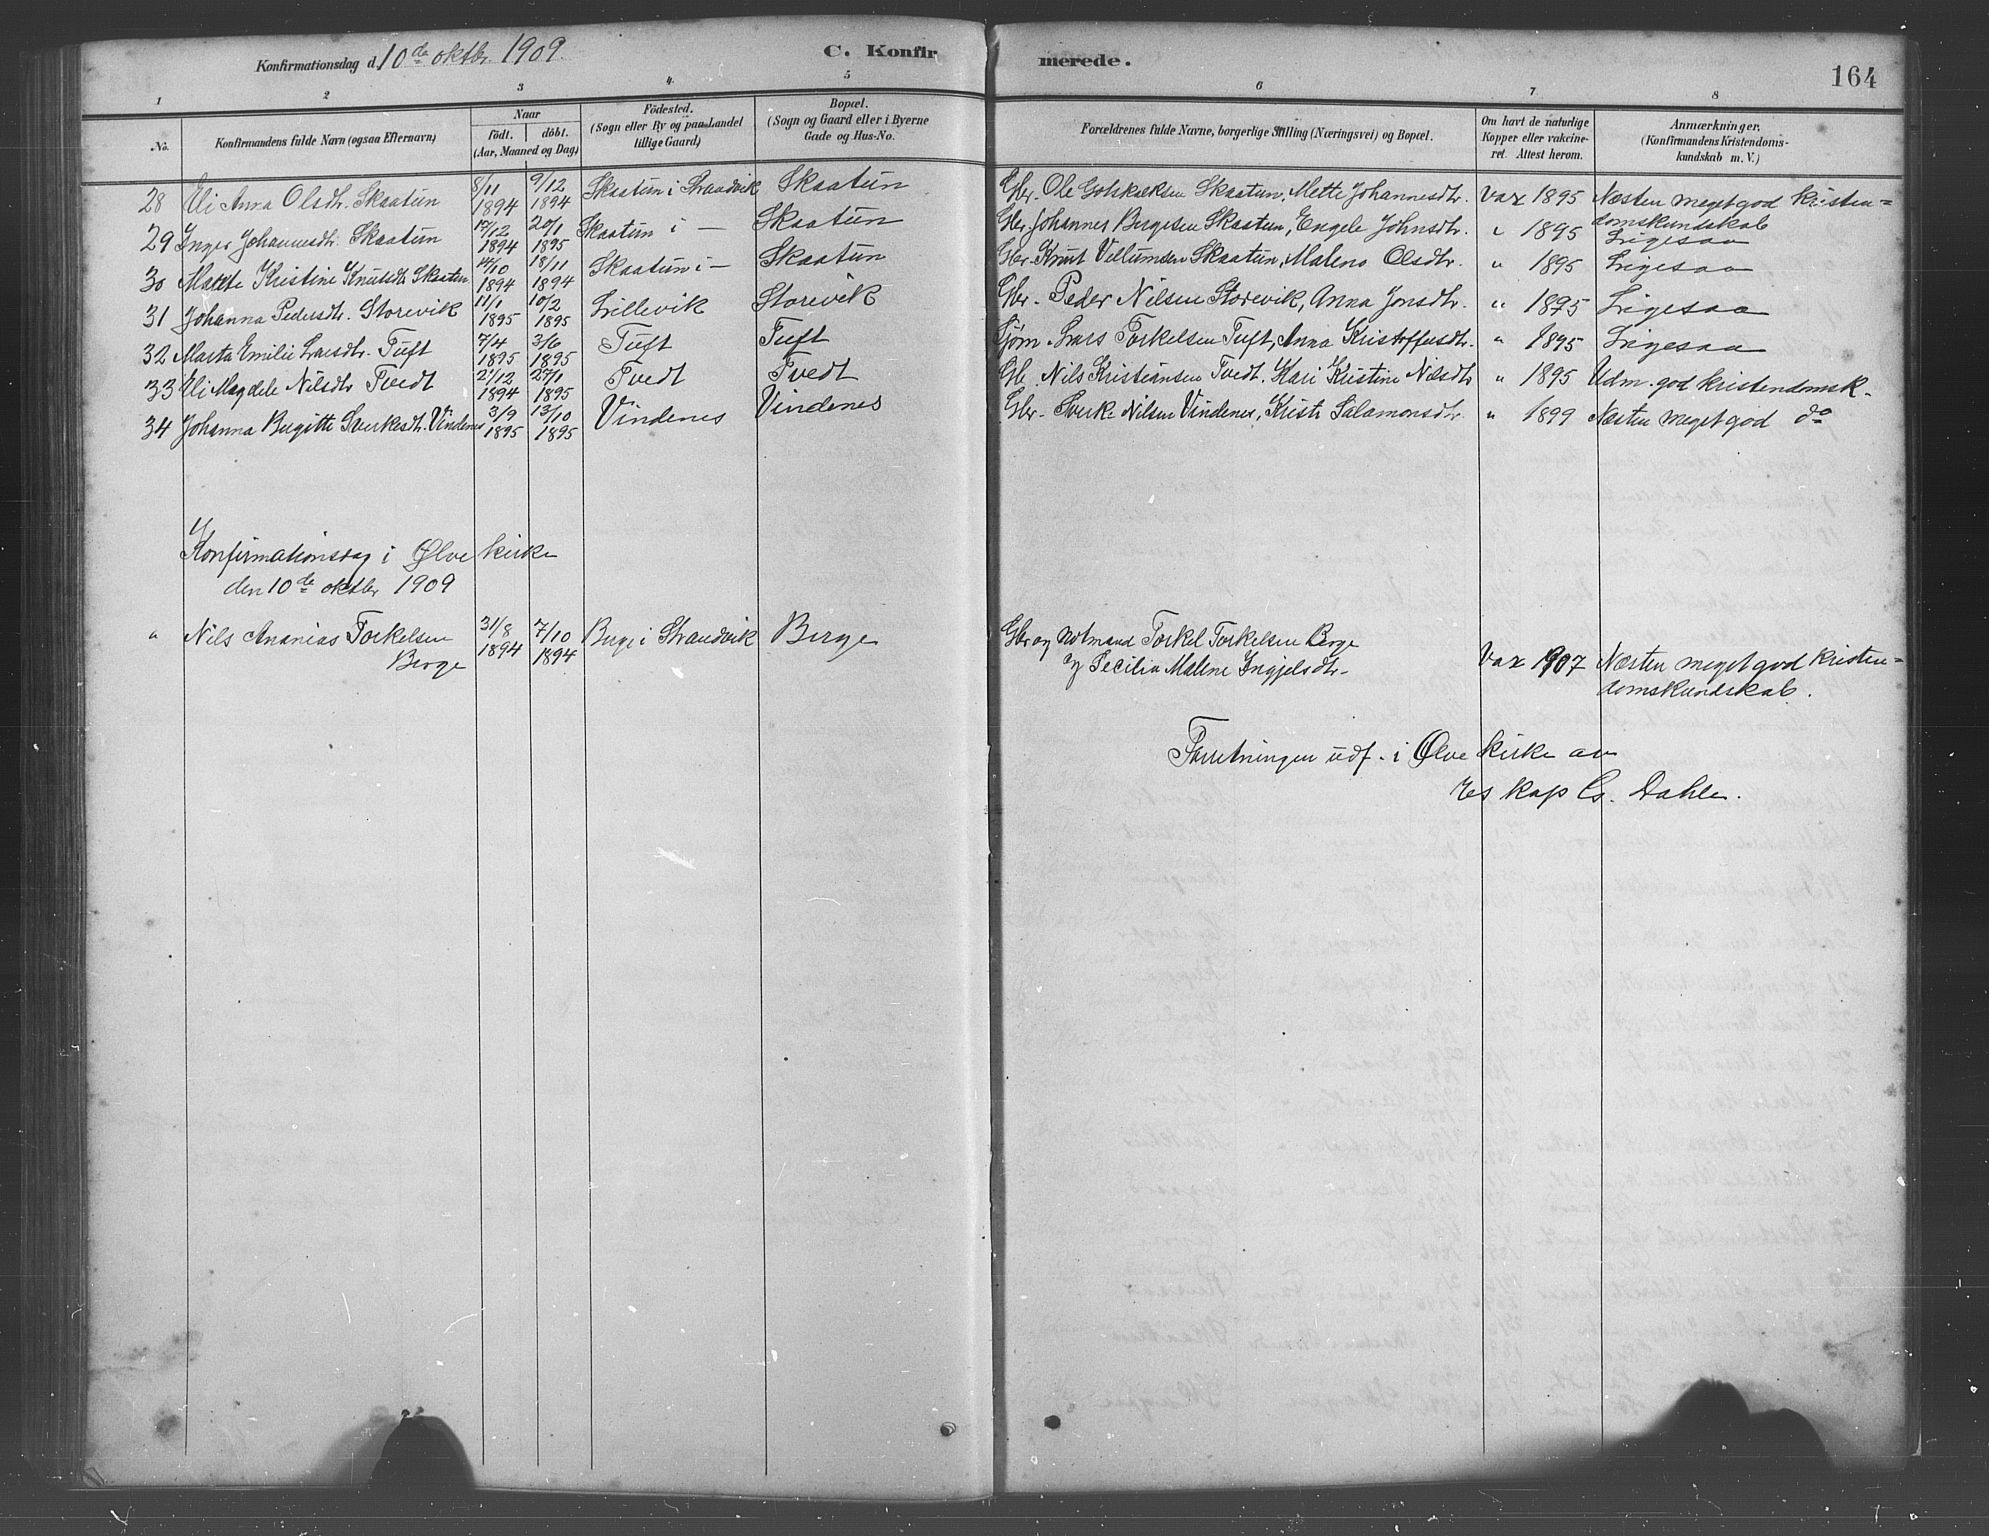 Konfirmationsdag d. 10de oktbr. 1909.
C. Konfirmerede.
164
1 2 3 4. 5 6 7 8
No.
Konfirmandens fulde Navn (ogsaa Efternavn)
Naar
födt. döbt.
(Aar, Maaned og Dag)
Födested.
(Sogn eller By og paa Landet
tillige Gaard)
Bopæl.
(Sogn og Gaard eller i Byerne
Gade og Hus-No.
Forældrenes fulde Navne, borgerlige Stilling (Næringsvei) og Bopæl.
Om havt de naturlige
Kopper eller vakcine-
ret. Attest herom.
Anmærkninger.
(Konfirmandens Kristendoms-
kundskab m. V.)
28 Eli Anna Olsdtr. Skaatun 8/11 1894 9/12 1894 Skaatun i Strandvik Skaatun Gbr. Ole Gotskalksen Skaatun, Mette Johannesdtr. Vax 1895 Næsten meget god kristen=
domskundskab
29 Inger Johannesdtr. Skaatun 17/12 1894 20/1 1895 Skaatun i — Skaatun Gbr. Johannes Birgesen Skaatun, Engele Johnsdtr. " 1895 Ligesaa
30 Mette Kristine Knutsdtr Skaatun 14/10 1894 18/11 1894 Skaatun i — Skaatun Gbr. Knut Vellumsen Skaatun, Malene Olsdtr. " 1895 Ligesaa
31 Johanna Pedersdtr. Storevik 11/1 1895 10/2 1895 Lillevik Storevik Gbr. Peder Nilsen Storevik, Anna Jonsdtr. " 1895 Ligesaa
32 Marta Emilie Larsdtr. Tuft 7/4 1895 3/6 1895 Tuft Tuft Lars Torkelsen Tuft, Anna Kristoffersdtr. " 1895 Ligesaa
33 Eli Magdele Nilsdtr Tvedt 21/12 1894 27/1 1895 Tvedt Tvedt Gb. Nils Kristiansen Tvedt, Kari Kristine Nilsdtr " 1895 Udm. god kristendomsk.
34 Johanna Birgitte Sverkesdtr. Vindenes 3/9 1895 13/10 1895 Vindenes Vindenes Gbr. Sverke Nilsen Vindenes, Kristi Salamonsdtr. " 1899 Næsten meget god do
Konfirmationsdag i Ølve kirke
den 10de oktbr 1909
" Nils Ananias Torkelsen 31/8 1894 7/10 1894 Berge i Strandvik Berge Gbr og notmand Torkel Torkelsen Berge
Berge og Cecilia Malene Ingjelsdtr. Vax 1907 Næsten meget god kristen=
domskundskab.
Forretningen udf. i Ølve kirke av
res kap Cs. Dahle.